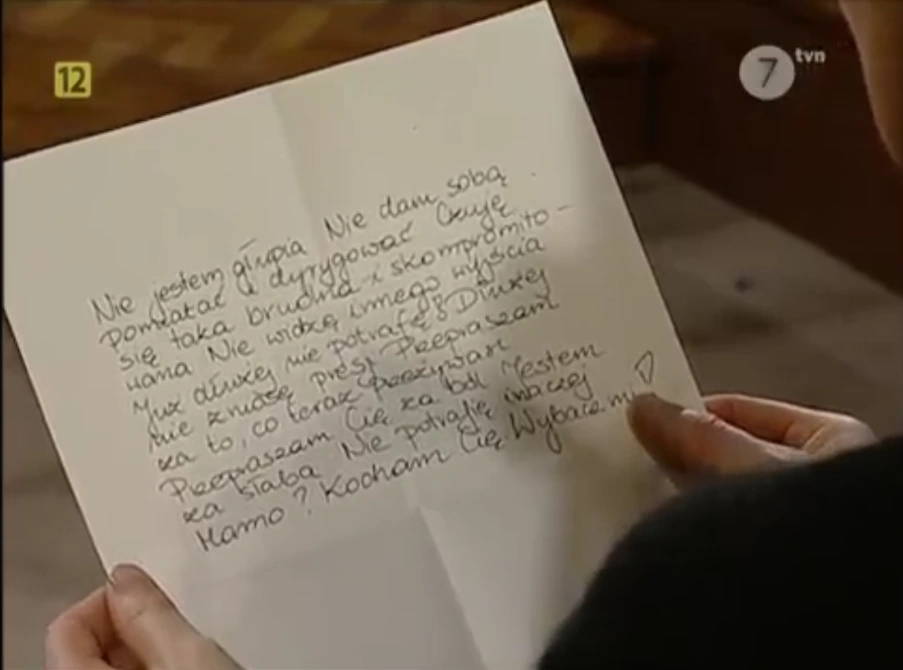 12
7 tvn
Nie jestem głupia Nie dam sobą
pomiatać i dyrygować Czuję
się taka brudna i skompromito-
wana Nie widzę innego wyjścia
Już dłużej nie potrafię Dłużej
nie zniosę presj Przepraszam
za to, co teraz przeżywasz
Przepraszam Cię za ból Jestem
za słaba Nie potrafię inaczej
Mamo? Kocham Cię Wybacz mi